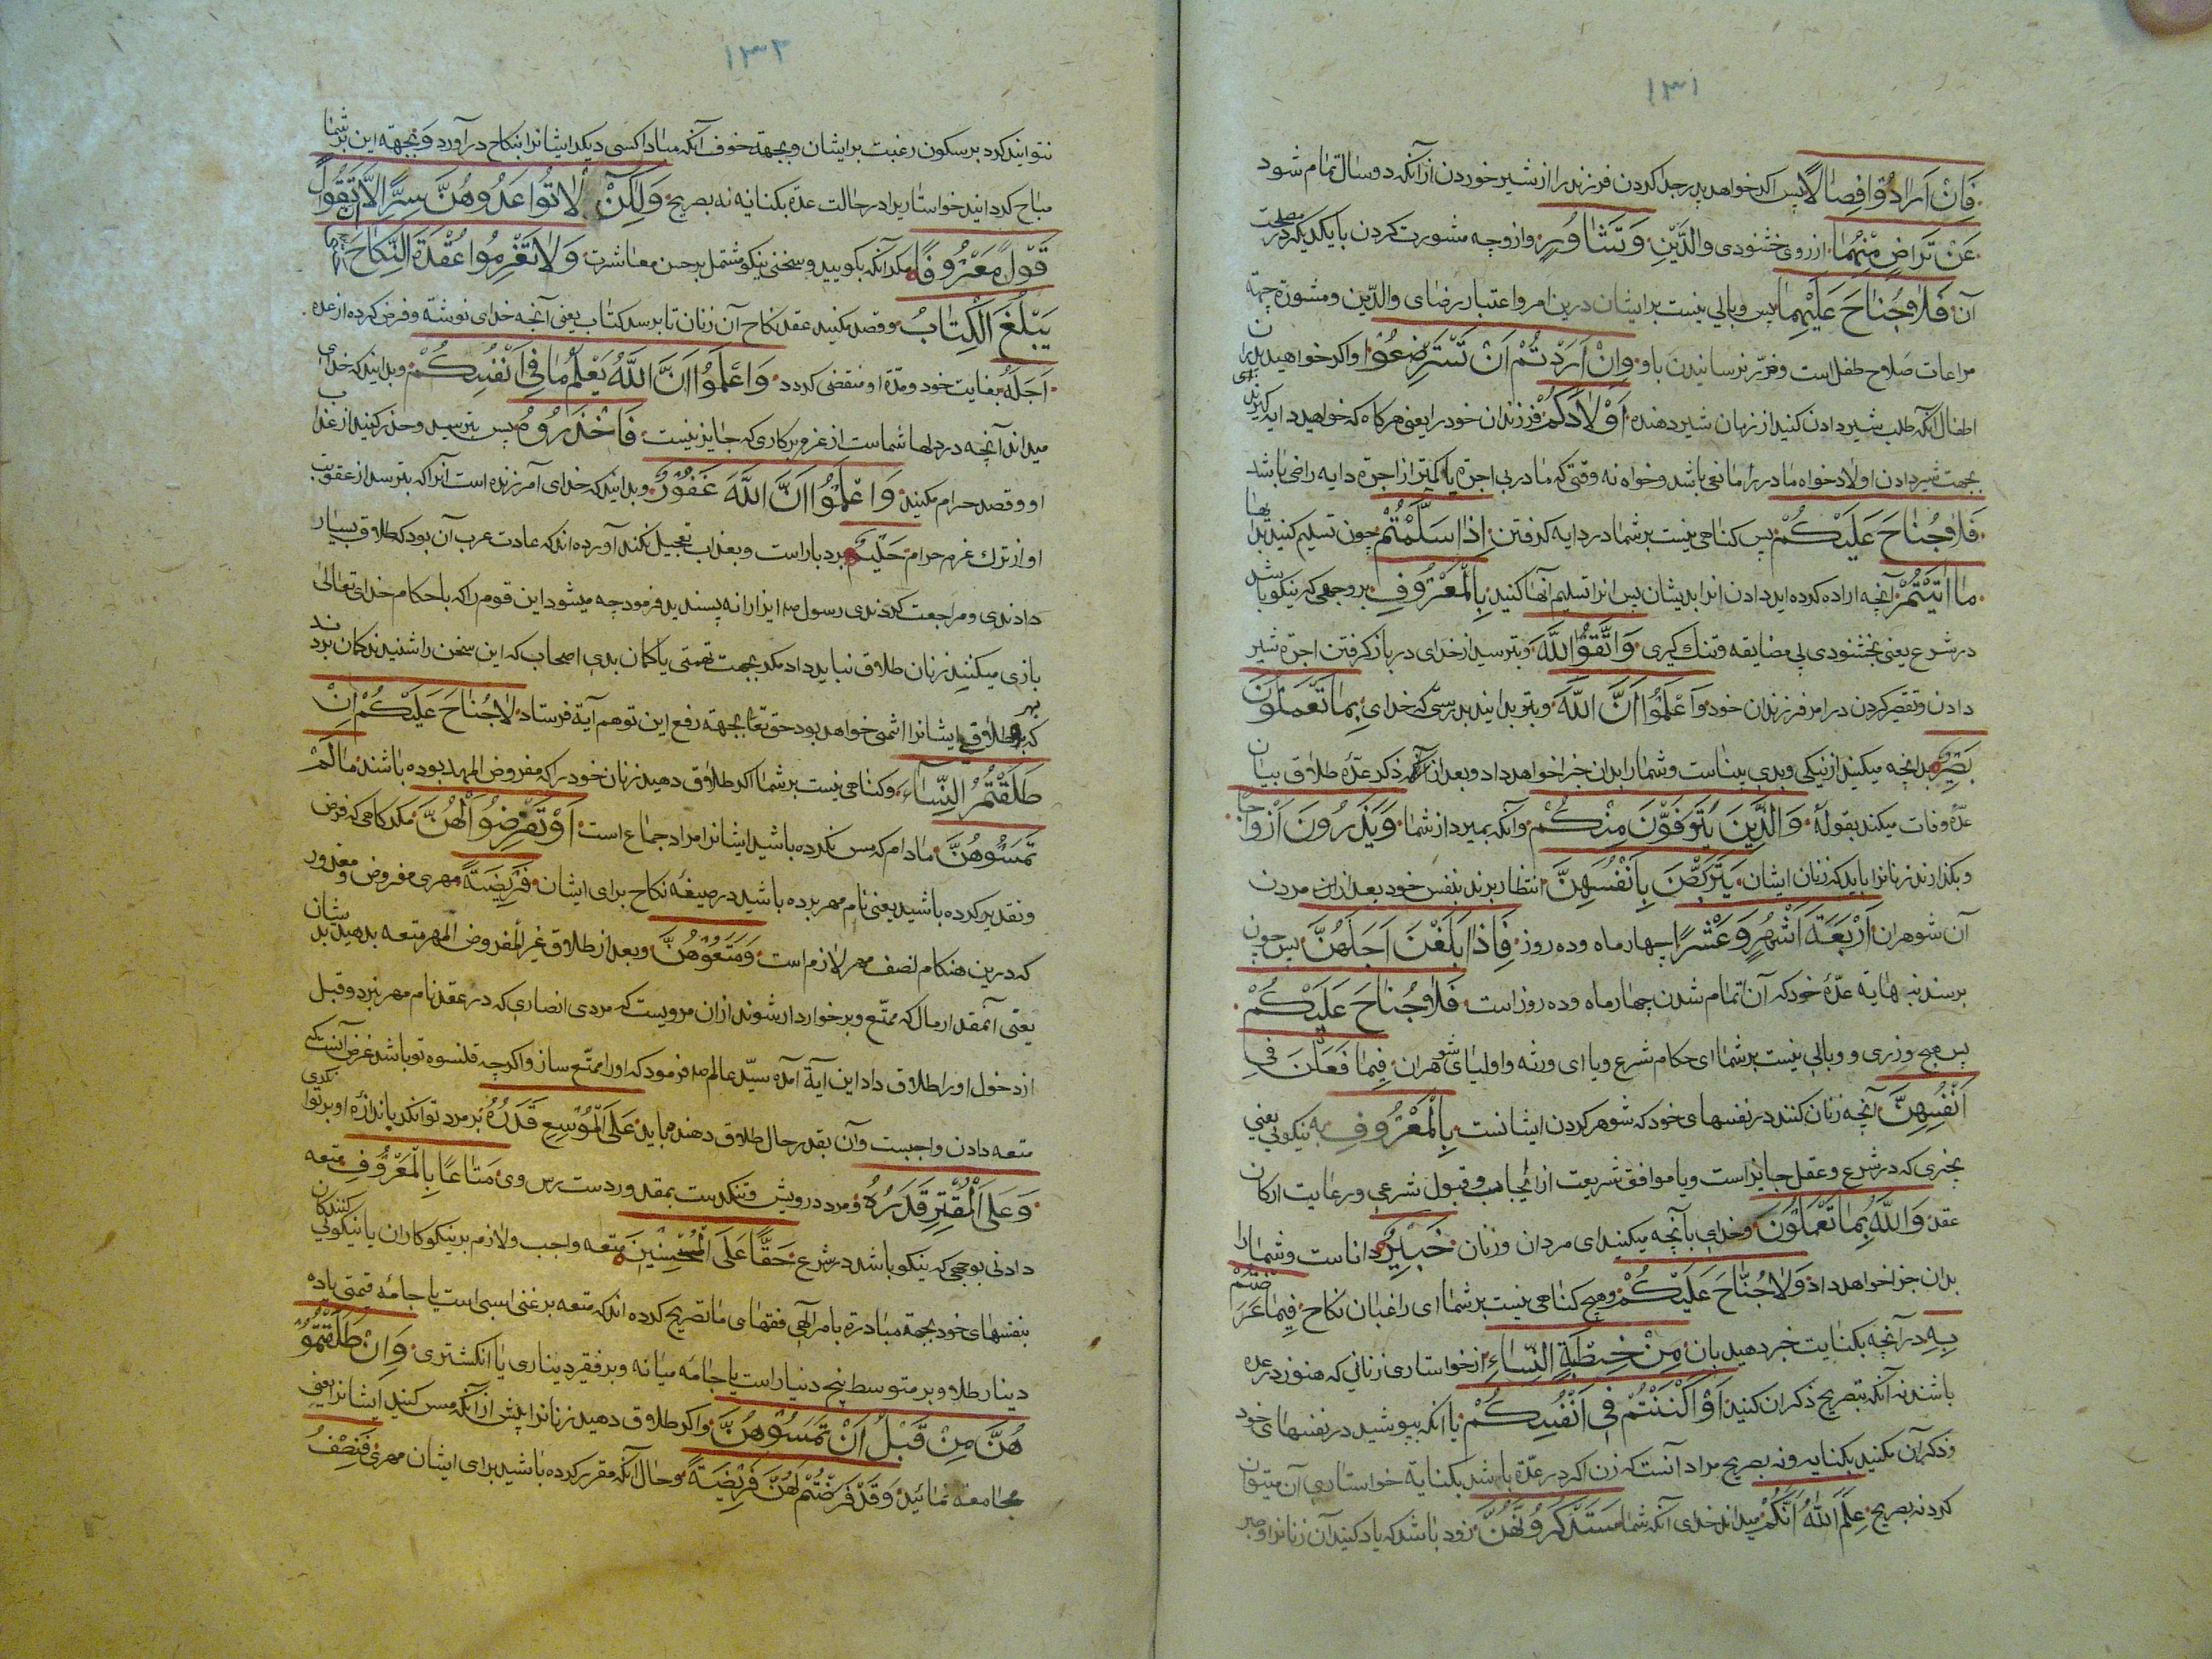 ۱۳۱
فَاِنْ اَرَادُوا فِصَالًا پس اگر خواهد پدر جدا کردن فرزند را از شیر خوردن از آنکه دو سال تمام شود
عَنْ تَرَاضٍ مِنْهُمَا از روی خشنودی والدین وَتَشَاوُرٍ و از وجه مشورت کردن با یکدیگر در مصلحت
آن فَلَا جُنَاحَ عَلَیْهِمَا پس وبالی نیست بر ایشان درین امر و اعتبار رضای والدین و مشورة جهة
مراعات صلاح طفل است و ضرر نرسانیدن باو وَاِنْ اَرَدْتُمْ اَنْ تَسْتَرْضِعُوا و اگر خواهید پدران
اطفال آنکه طلب شیر دادن کنید از زنان شیر دهنده اَوْلَادَكُمْ فرزندان خود را یعنی هرکاه که خواهید دایه گیرند برای
بجهت شیر دادن اولاد خواه مادر را مانعی باشد و خواه نه وقتی که مادر بی اجرة یا کمتر از اجرة دایه راضی باشد
فَلَا جُنَاحَ عَلَیْكُمْ پس کناهی نیست بر شما در دایه کرفتن اِذَا سَلَّمْتُمْ چون تسلیم کنید بدایها
مَا اٰتَیْتُمْ آنچه اراده کرده اید دادن آنرا بدیشان پس آنرا تسلیم آنها کنید بِالْمَعْرُوفِ بر وجهی که نیکو باشد
در شرع یعنی بخشنودی بی مضایقه و تنك کیری وَاتَّقُوا اللّٰهَ و بترسید از خدای در باز کرفتن اجرة شیر
دادن و تقصیر کردن در امر فرزندان خود وَاعْلَمُوا اَنَّ اللّٰهَ و بدانید بدرستی که خدای بِمَا تَعْمَلُونَ
بَصِیرٌ بدانچه میکنید از نیکی و بدی بیناست و شما را بدان جزا خواهد داد و بعد از ذکر عدّهٔ طلاق بیان
عدّهٔ وفات میکند بقوله وَالَّذِینَ یُتَوَفَّوْنَ مِنْكُمْ و آنکه بمیرد از شما وَیَذَرُونَ اَزْوَاجًا
و بکذارند زنانرا باید که زنان ایشان یَتَرَبَّصْنَ بِاَنْفُسِهِنَّ انتظار برند بنفس خود بعد از آن مردن
آن شوهران اَرْبَعَةَ اَشْهُرٍ وَعَشْرًا چهار ماه و ده روز فَاِذَا بَلَغْنَ اَجَلَهُنَّ پس چون
برسند بنهایة عدّهٔ خود که آن تمام شدن چهار ماه و ده روز است فَلَا جُنَاحَ عَلَیْكُمْ
پس هیچ وزری و وبالی نیست بر شما ای حکام شرع و یا ای ورثه و اولیای شوهران فِیمَا فَعَلْنَ فِی
اَنْفُسِهِنَّ آنچه زنان کنند در نفسهای خود که شوهر کردن ایشانست بِالْمَعْرُوفِ به نیکویی یعنی
بچیزی که در شرع و عقل جایز است و یا موافق شریعت از ایجاب و قبول شرعی و رعایت ارکان
عقد وَاللّٰهُ بِمَا تَعْمَلُونَ و خدای بآنچه میکنید ای مردان و زنان خَبِیرٌ داناست و شما را
بدان جزا خواهد داد وَلَا جُنَاحَ عَلَیْكُمْ و هیچ کناهی نیست بر شما ای راغبان نکاح فِیمَا عَرَّضْتُمْ
بِهِ در آنچه بکنایت خبر دهید بان مِنْ خِطْبَةِ النِّسَاءِ از خواستاری زنانی که هنوز در عده
باشند نه آنکه بتصریح ذکر آن کنید اَوْ اَكْنَنْتُمْ فِی اَنْفُسِكُمْ یا آنکه بپوشید در نفسهای خود
و ذکر آن مکنید بکنایه و نه بصریح مراد آنست که زن اکر در عدّة باشد بکنایة خواستاری آن میتوان
کرد نه بصریح عَلِمَ اللّٰهُ اَنَّكُمْ میداند خدای آنکه شما سَتَذْكُرُونَهُنَّ زود باشد که یاد کنید آن زنانرا و صبر
۱۳۲
نتوانید کرد بر سکون رغبت بر ایشان و بجهة خوف آنکه مبادا کسی دیکر ایشانرا بنکاح در آورد و بجهة این بر شما
مباح کردانید خواستاریرا در حالت عدّة بکنایه نه بصریح وَلٰكِنْ لَا تُوَاعِدُوهُنَّ سِرًّا اِلَّا اَنْ تَقُولُوا
قَوْلًا مَعْرُوفًا مکر آنکه بکویید و سخنی نیکو مشتمل بر حسن معاشرت وَلَا تَعْزِمُوا عُقْدَةَ النِّكَاحِ حَتّٰی
یَبْلُغَ الْكِتَابُ و قصد مکنید عقد نکاح آن زنان تا برسد کتاب یعنی آنچه خدای نوشته و فرض کرده از عده
اَجَلَهُ بغایت خود و مدّة او منقضی کردد وَاعْلَمُوا اَنَّ اللّٰهَ یَعْلَمُ مَا فِی اَنْفُسِكُمْ و بدانید که خدای
میداند آنچه در دلها شماست از عزم بر کاری که جایز نیست فَاحْذَرُوهُ پس بترسید و حذر کنید از عذاب
او و قصد حرام مکنید وَاعْلَمُوا اَنَّ اللّٰهَ غَفُورٌ و بدانید که خدای آمرزنده است آنرا که بترسد از عقوبت
او از ترك عزم حرام حَلِیمٌ بردبار است و بعذاب تعجیل نکند آورده اند که عادت عرب آن بود که طلاق بسیار
دادندی و مراجعت کردندی رسول صم اینرا نه پسندید فرمود چه میشود این قوم را که باحکام خدای تعالی
بازی میکنند زنان طلاق نباید داد مکر بجهت تهمتی یا کمان بدی اصحاب که این سخن را شنیدند کمان بردند
که بهر طلاقی ایشانرا اثمی خواهد بود حق تعا بجهة رفع این توهم آیة فرستاد لَا جُنَاحَ عَلَیْكُمْ اِنْ
طَلَّقْتُمُ النِّسَاءَ و کناهی نیست بر شما اکر طلاق دهید زنان خود را که مفروض المهر بوده باشند مَا لَمْ
تَمَسُّوهُنَّ مادام که مس نکرده باشید ایشانرا مراد جماع است اَوْ تَفْرِضُوا لَهُنَّ مکر کاهی که فرض
و تقدیر کرده باشید یعنی نام مهر برده باشید در صیغهٔ نکاح برای ایشان فَرِیضَةً مهری مفروض و مقدور
که درین هنکام نصف مهر لازم است وَمَتِّعُوهُنَّ و بعد از طلاق غیر المفروض المهر متعه بدهید بدیشان
یعنی آنمقدار مال که ممتّع و برخوردار شوند از آن مرویست که مردی انصاری که در عقد نام مهر نبرد و قبل
از دخول او را طلاق داد این آیة آمد سیّد عالم صم فرمود که او را ممتّع ساز و اکرچه قلنسوه تو باشد غرض آنست که
متعه دادن واجبست و آن بقدر حال طلاق دهنده میباید عَلَی الْمُوسِعِ قَدَرُهُ بر مرد توانکر باندازه او بر توانکری
وَعَلَی الْمُقْتِرِ قَدَرُهُ و مرد درویش و تنکدست بمقدور دست رس وی مَتَاعًا بِالْمَعْرُوفِ متعه
دادنی بوجهی که نیکو باشد در شرع حَقًّا عَلَی الْمُحْسِنِینَ متعه واجب و لازم بر نیکوکاران یا نیکویی کنندکان
بنفسهای خود بجهة مبادرة بامر الهی فقهای ما تصریح کرده اند که متعه بر غنی اسبی است یا جامهٔ قیمتی یا ده
دینار طلا و بر متوسط پنج دینار است یا جامهٔ میانه و بر فقیر دیناری یا انکشتری وَاِنْ طَلَّقْتُمُو
هُنَّ مِنْ قَبْلِ اَنْ تَمَسُّوهُنَّ و اکر طلاق دهید زنانرا پیش از آنکه مس کنید ایشانرا یعنی
مجامعه نمائید وَقَدْ فَرَضْتُمْ لَهُنَّ فَرِیضَةً و حال آنکه مقرر کرده باشید برای ایشان مهری فَنِصْفُ